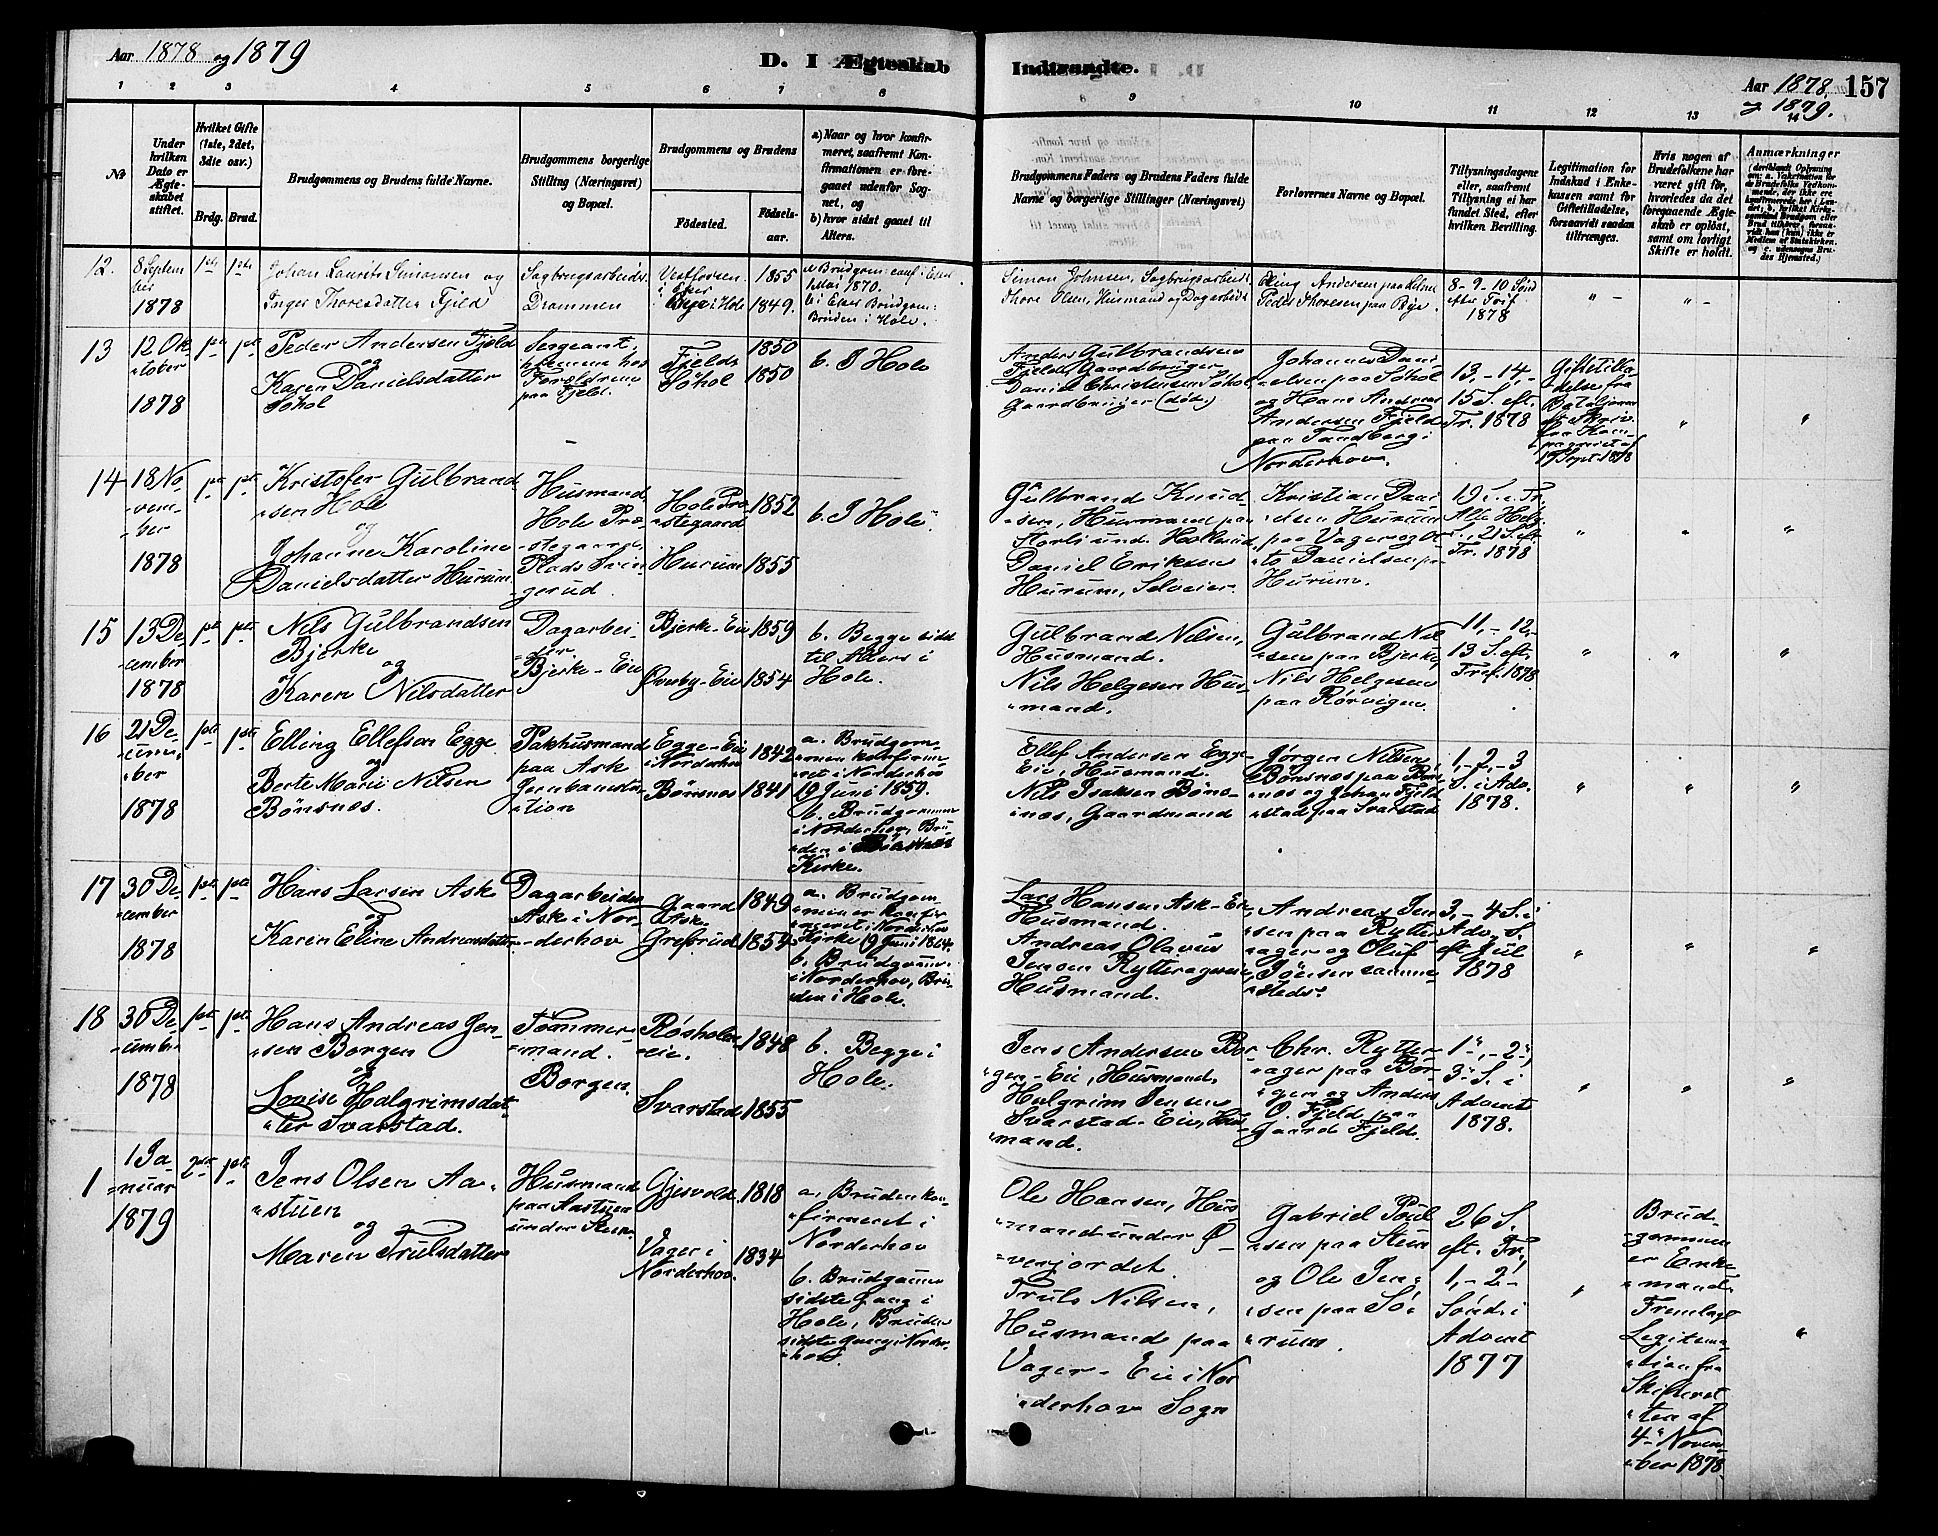 Aar 1878 og 1879
D. I Ægteskab
Indtraadte.
Aar 1878 157
og 1879.
1 2 3 4 5 6 7 8 9 10 11 12 13 14
No
Under hvilken Dato er Ægteskabet stiftet.
Hvilket Gifte (1ste, 2det, 3die osv.)
Brdg. Brud.
Brudgommens og Brudens fulde Navne.
Brudgommens borgerlige Stilling (Næringsvei) og Bopæl.
Brudgommens og Brudens
Fødested.
Fødsels-aar.
a) Naar og hvor konfirmeret, saafremt Konfirmationen er foregaaet udenfor Sognet, og
b) hvor sidst gaaet til Alters.
Brudgommens Faders og Brudens Faders fulde Navne og borgerlige Stillinger (Næringsvei)
Forlovernes Navne og Bopæl.
Tillysningsdagene eller, saafremt Tillysning ei har fundet Sted, efter hvilken Bevilling.
Legitimation for Indskud i Enkekassen samt for Giftetilladelse, forsaavidt saadan tiltrænges.
Hvis nogen af Brudefolkene har været gift før, hvorledes da det foregaaende Ægteskab er opløst, samt om lovligt Skifte er holdt.
Anmærkninger
12.
8 Septem
ber
1878
1ste 1ste
Johan Laurits Simonsen og
Inger Thoresdatter Fjeld
Sagbrugsarbeider
Drammen
Vestfossen
i Eker
i Hole
1855
1849.
a Brudgom: conf i Eker
1 Mai 1870.
b i Eker Brudgom:
Bruden i Hole.
Simon Johnsen, Sagbrugsarbeid:
Thore Olsen, Husmand og Dagarbeid:
Elling Andersen paa
Peder Thoresen paa Bye.
8-9-10 Sønd
efter Trif.
1878
13
12 Ok-
tober
1878
1ste 1ste
Peder Andersen Fjeld
og
Karen Danielsdatter
Søhol
Sergeant,
hjemme hos
Forældrene
paa Fjeld.
Fjeld
Søhol
1850
1850
b. I Hole
Anders Gulbrandsen
Fjeld, Gaardbruger
Daniel Christensen Søhol,
Gaardbruger (død)
Johannes Dani
elsen paa Søhol
og Hans Andreas
Andersen Fjeld
paa Tandberg i
Norderhov.
13,-14,-
15 S. eft.
Tr. 1878
Giftetilla-
delse fra
Bataljonen
19 Sept. 1878
14
18 No-
vem-
ber
1878
1ste 1ste
Kristofer Gulbrand
sen Hole
og
Johanne Karoline
Danielsdatter Hurum
Husmand
Hole Præ-
stegaard,
Plads Svin-
gerud.
Hole Præ-
stegaard
Hurum
1852
1855
b. I Hole.
Gulbrand Knud
sen, Husmand paa
Storli under Hollerud,
Daniel Eriksen
Hurum, Selveier.
Kristian Dani
elsen Hurum
paa Vager og Ot
to Danielsen paa
Hurum.
19 S. e Tr.
Alle Helg.
S., 21 S. eft.
Tr. 1878
15
13 De-
cember
1878
1ste 1ste
Nils Gulbrandsen
Bjerke
og
Karen Nilsdatter
Dagarbei-
der,
Bjerke-Eie
Bjerke-Eie
Øverby-Eie
1859
1854
b. Begge sidst
til Alters i
Hole.
Gulbrand Nilsen,
Husmand.
Nils Helgesen Hus
mand.
Gulbrand Nil
sen paa Bjerke,
Nils Helgesen
paa Rørvigen.
11,-12,-
13 S. eft.
Tref. 1878
16
21 De-
cem-
ber
1878
1ste 1ste
Elling Ellefsen Egge
og
Berte Marie Nilsen
Bønsnes.
Pakhusmand
paa Ask
Jernbanesta-
tion
Egge-Eie
i Norderhov
Bønsnes
1842
1841
a. Brudgom-
men konfirme-
ret i Norderhov
19 Juni 1859.
b. Brudgommen
i Norderhov, Bru
den i Bønsnes
Kirke.
Ellef Andersen Egge
Eie, Husmand.
Nils Isaksen Bøns-
nes, Gaardmand
Jørgen Nilsen
Bønsnes paa Bøns
nes og Johan Fjeld
stad paa Svarstad
1,-2,-3
S. i Adv.
1878.
17
30 De-
cember
1878
1ste 1ste
Hans Larsen Ask
og
Karen Eline Andreasdatter
Dagarbeider
Ask i Nor-
derhov
Gaard
Ask.
Grefsrud
1849
1854
a. Brudgom-
men er konfir-
meret i Norderhov
Kirke 19 Juni 1864.
b. Brudgomm.
i Norderhov, Bru-
den i Hole.
Lars Hansen, Ask-Eie,
Husmand.
Andreas Olavus
Jensen Rytterager-eie,
Husmand.
Andreas Jen
sen paa Rytter
ager og Oluf
samme-
steds.
3,-4 S. i
Adv., S.
eft Jul
1878
18
30 De-
cember
1878
1ste 1ste
Hans Andreas Jen-
sen Borgen
og
Lovise Halgrimsdat
ter Svarstad.
Tømmer-
mand.
Borgen.
Røsholm-
eie.
Svarstad
1848
1855
b. Begge i
Hole.
Jens Andersen Bor-
gen-Eie, Husmand.
Halgrim Jensen
Svarstad-Eie, Hus-
mand.
Chr. Rytter-
ager paa Bor-
gen og Anders
O. Fjeld paa
Gaard Fjeld.
1-,-2-,
3- S. i
Advent
1878.
1
1 Ja-
nuar
1879
2det 1ste
Jens Olsen Aa-
stuen
og
Maren Trulsdatter
Husmand
paa Aastuen
under Steen.
Gjesvold
Vager i
Norderhov.
1818
1834
a. Bruden kon-
firmeret i
Norderhov
b. Brudgommen
sidste Gang i
Hole, Bruden
sidste Gang i Norder-
hov.
Ole Hansen, Hus
mand under Ø-
verjordet.
Truls Nilsen,
Husmand paa
Vager-Eie i Nor
derhov Sogn
Gabriel Poul
sen paa Steen
og Ole Jen-
sen paa Sø-
rum.
26 S.
eft. Tr,
1,-2-
Sønd. i
Advent
1877
Brud-
gommen
er Enke
mand.
Fremlagt
Legitima-
tion fra
Skifteret
ten af
4- Novem-
ber 1878